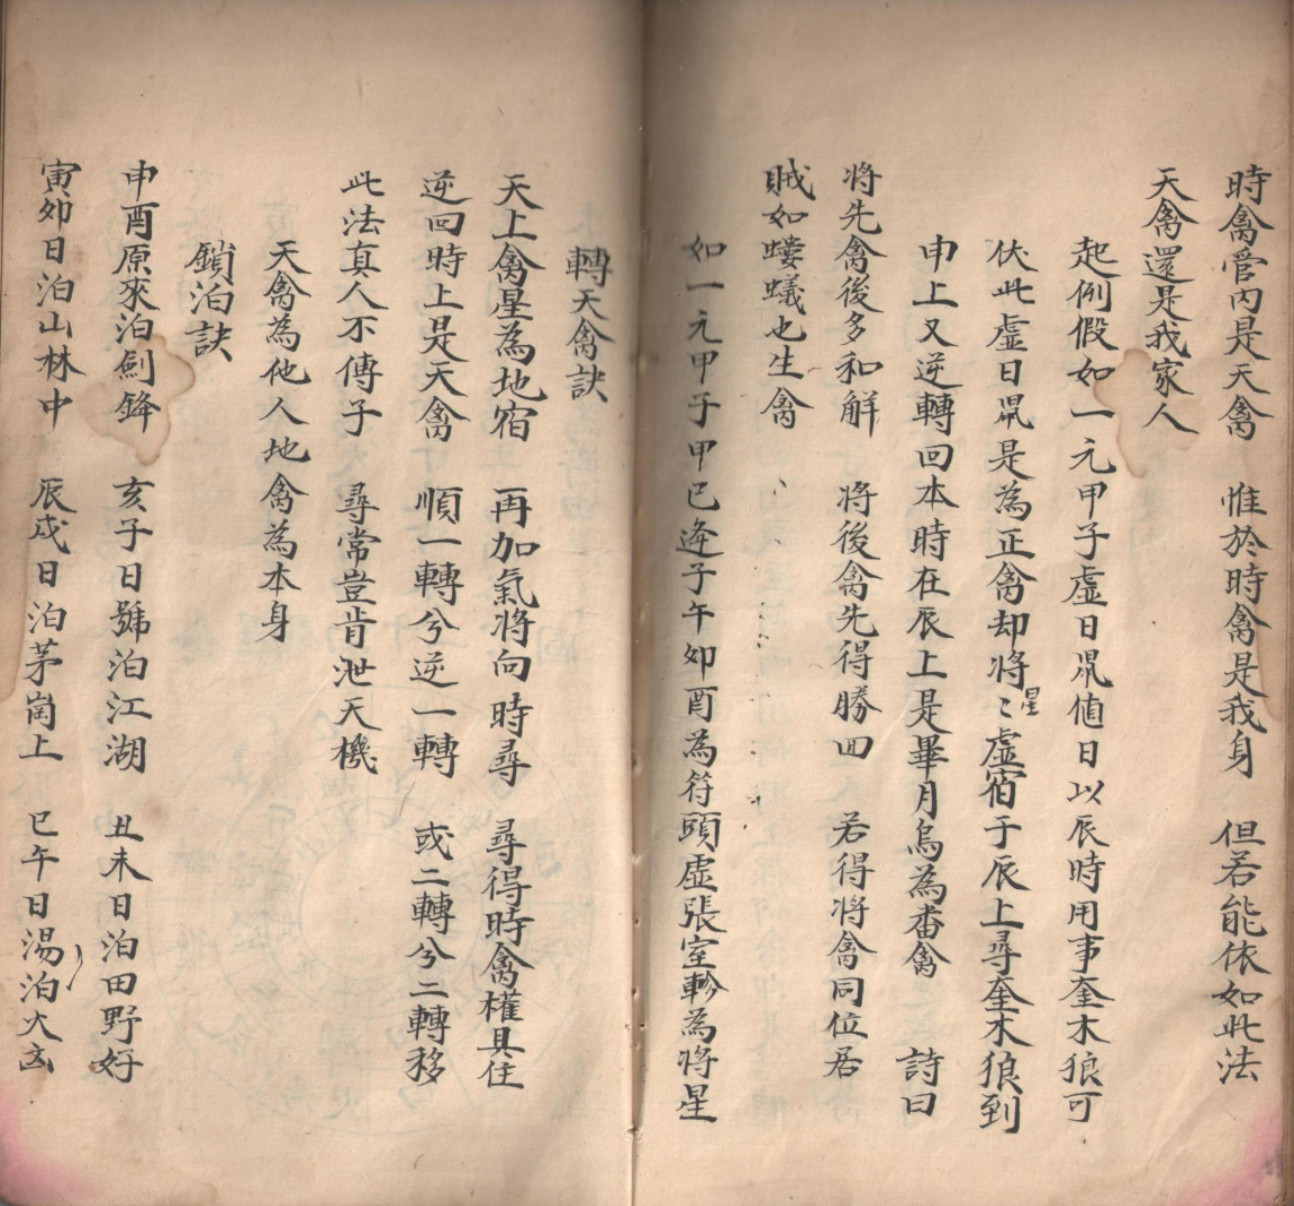 時禽管内是天禽　惟於時禽是我身　但若能依如此法
天禽還是我家人
起例假如一元甲子虛日鼠値日以辰時用事奎木狼可
伏此虛日鼠是為正禽却將星〻虛宿于辰上尋奎木狼到
申上又逆轉回本時在辰上是畢月烏為畨禽　詩曰
將先禽後多和解　將後禽先得勝回　若得將禽同位居
賊如螻蟻也生禽
如一元甲子甲己逄子午卯酉為符頭虛張室軫為將星
轉天禽訣
天上禽星為地宿　再加氣將向時尋　尋得時禽權具住
逆回時上是天禽　順一轉兮逆一轉　或二轉兮二轉移
此法真人不傳子　尋常豈肯泄天機
天禽為他人地禽為本身
鎖泊訣
申酉原來泊劍鋒　亥子日號泊江湖　丑未日泊田野好
寅卯日泊山林中　辰戌日泊茅崗上　巳午日湯泊火